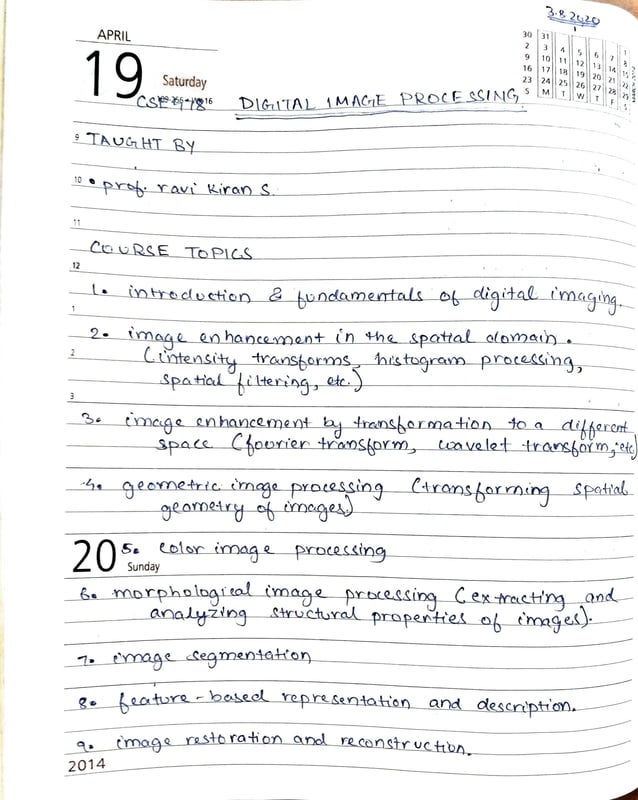 3.8.2020
APRIL
30 31
2 3 4 5 6 7 1
9 10 11 12 13 14 8
16 17 18 19 20 21 15
23 24 25 26 27 28 22
S M T W T F S
19 Saturday
CSE 16
DIGITAL IMAGE PROCESSING
9 TAUGHT BY
10 • prof. ravi kiran S.
11
COURSE TOPICS
12
1. introduction & fundamentals of digital imaging.
1
2. image enhancement in the spatial domain.
2 (intensity transforms, histogram processing,
spatial filtering, etc.)
3
3. image enhancement by transformation to a different
space (fourier transform, wavelet transform, etc)
4. geometric image processing (transforming spatial
geometry of images)
20 5. color image processing
Sunday
6. morphological image processing (extracting and
analyzing structural properties of images).
7. image segmentation
8. feature-based representation and description.
9. image restoration and reconstruction.
2014